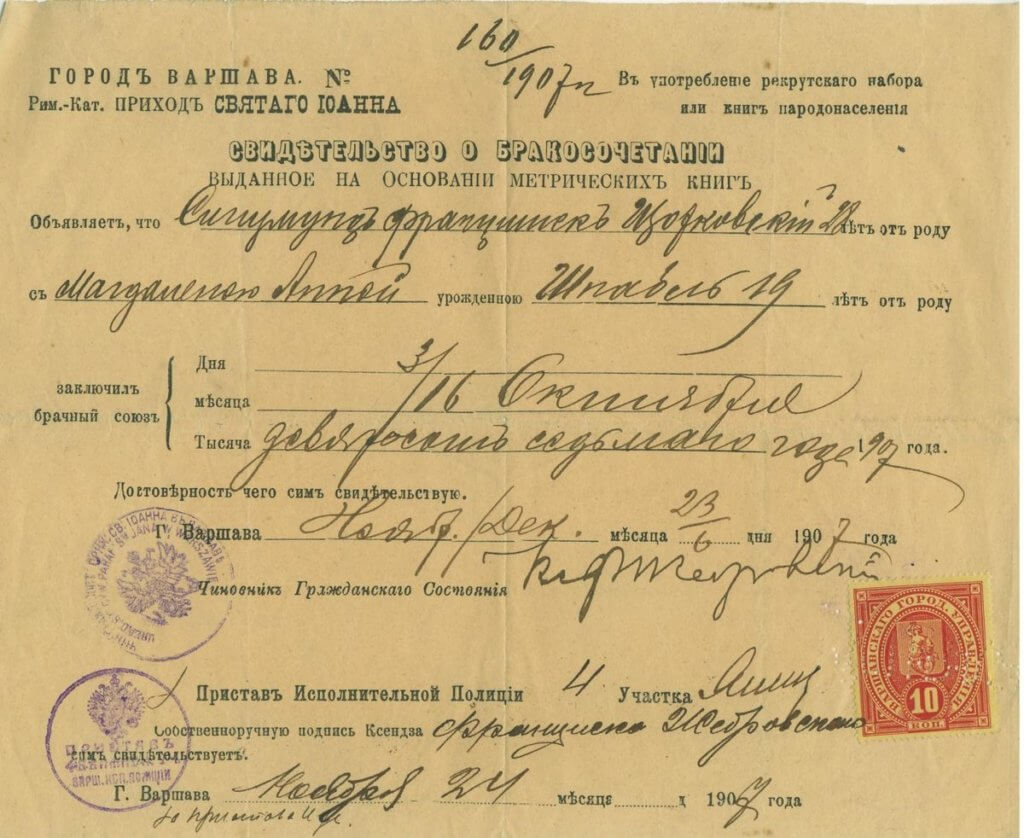 160/1907 г
ГОРОДЪ ВАРШАВА. №
Рим.-Кат. ПРИХОДЪ СВЯТАГО ІОАННА
Въ употребленіе рекрутскаго набора
или книгъ народонаселенія
СВИДѢТЕЛЬСТВО О БРАКОСОЧЕТАНІИ
ВЫДАННОЕ НА ОСНОВАНІИ МЕТРИЧЕСКИХЪ КНИГЪ
Объявляетъ, что Сигизмундъ Францишекъ 28 лѣтъ отъ роду
съ Магдаленою Анной урожденною Шнабель 19 лѣтъ отъ роду
заключилъ
брачный союзъ
Дня 3/16
мѣсяца Октября
Тысяча девятьсотъ седьмаго года 1907 года.
Достовѣрность чего симъ свидѣтельствую.
Г. Варшава Нояб./Дек. мѣсяца 23/6 дня 1907 года
Чиновникъ Гражданскаго Состоянія
Приставъ Исполнительной Полиціи 4 Участка
Собственноручную подпись Ксендза Франциска Жебровскаго
симъ свидѣтельствуетъ.
Г. Варшава Ноября 24 мѣсяца д 1907 года
ВАРШАВСКАГО ГОРОД. УПРАВЛЕНІЯ
10
КОП.
ПРИСТАВЪ
ВАРШ. ИСП. ПОЛИЦІИ